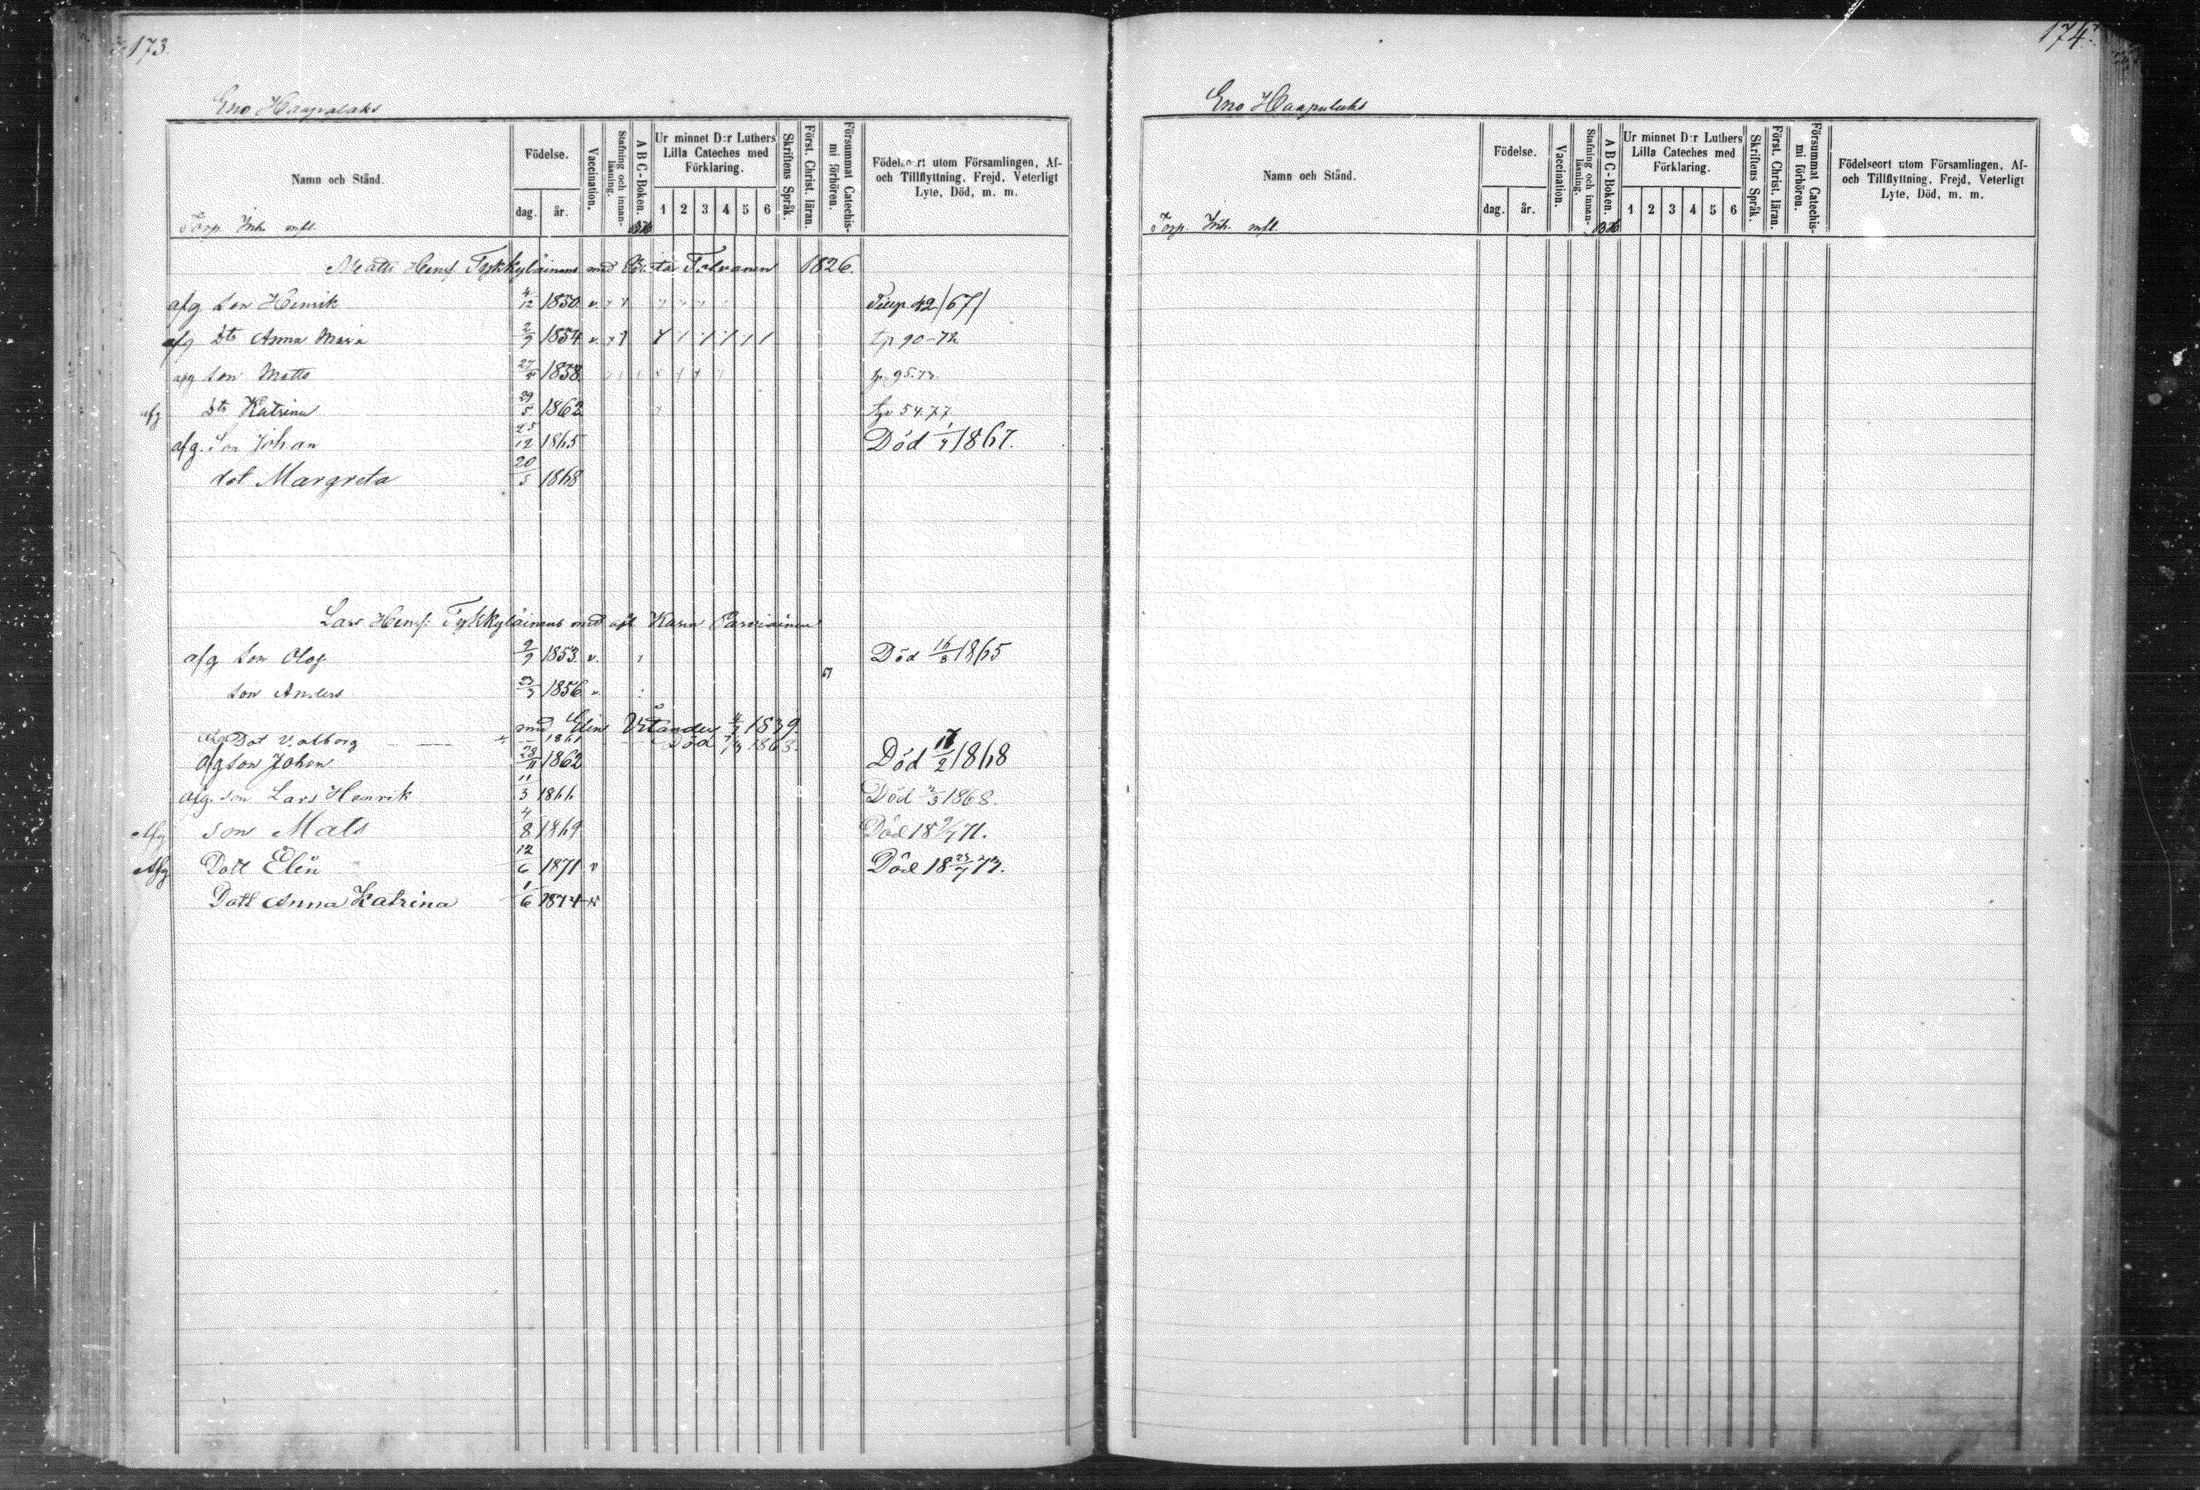 173.
Eno Haapalaks
Namn och Stånd.
Födelse.
dag. år.
Vaccination.
Stafning och innanläsning.
ABC-Boken.
Ur minnet D:r Luthers Lilla Cateches med Förklaring.
1 2 3 4 5 6
Skriftens Språk.
Först. Christ. läran.
Försummat Catechismi förhören.
Födelseort utom Församlingen, Af- och Tillflyttning, Frejd, Veterligt Lyte, Död, m. m.
Torp. Inh.
Matts Henr. Tykkyläinens med Tolvanen 1826.
afg Son Henrik 4/12 1850. v. 42/67/
afg Dtr Anna Maria 2/9 1854 v. tp 90-72
afg Son Matts 1858. tp 95.73.
afg Dtr Katrina 29/5 1862 tp 54.77
afg. Son Johan 25/12 1865 Död 1867.
dot Margreta 20/5 1868
Lars Henr. Tykkyläinens med Karin Parviainen
afg Son Olof 2/9 1853. v. Död 16/8 1865
67
Son Anders 1856. v.
med Elin 1839.
afg Dot Valborg 1861 död 1863.
afg son Johan 28/11 1862 Död 1868
afg. son Lars Henrik 11/3 1866 Död 1868.
Afg son Mats 4/8 1869 Död 18 9/7 71.
Afg Dott Elin 12/6 1871 v Död 18 23/7 73.
Dott Anna Katrina 1/6 1874 v
174.
Eno Haapalaks
Namn och Stånd.
Födelse.
dag. år.
Vaccination.
Stafning och innanläsning.
ABC-Boken.
Ur minnet D:r Luthers Lilla Cateches med Förklaring.
1 2 3 4 5 6
Skriftens Språk.
Först. Christ. läran.
Försummat Catechismi förhören.
Födelseort utom Församlingen, Af- och Tillflyttning, Frejd, Veterligt Lyte, Död, m. m.
Torp. Inh.